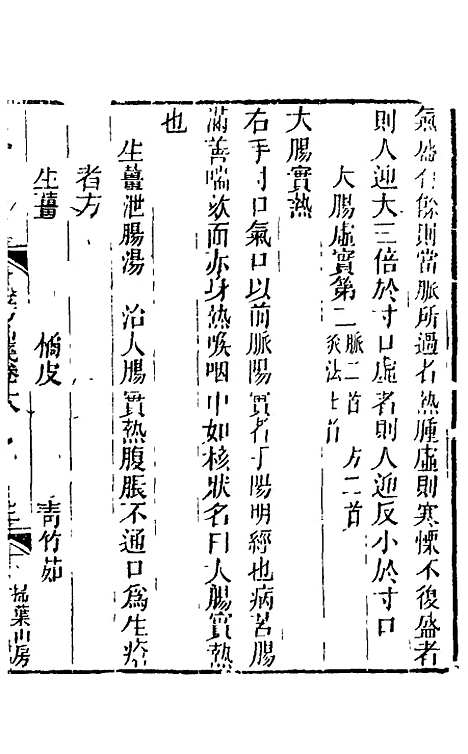 氣盛有餘則當脈所過者熱腫虛則寒慄不復盛者
則人迎大三倍於寸口虛者則人迎反小於寸口
大腸虛實第二 脈二首 方二首 灸法七首
大腸實熱
右手寸口氣口以前脈陽實者手陽明經也病苦腸
滿善喘欬而赤身熱喉咽中如核狀名曰大腸實熱
也
生薑泄腸湯 治大腸實熱腹脹不通口為生瘡
者方
生薑 橘皮 青竹茹
掃葉山房